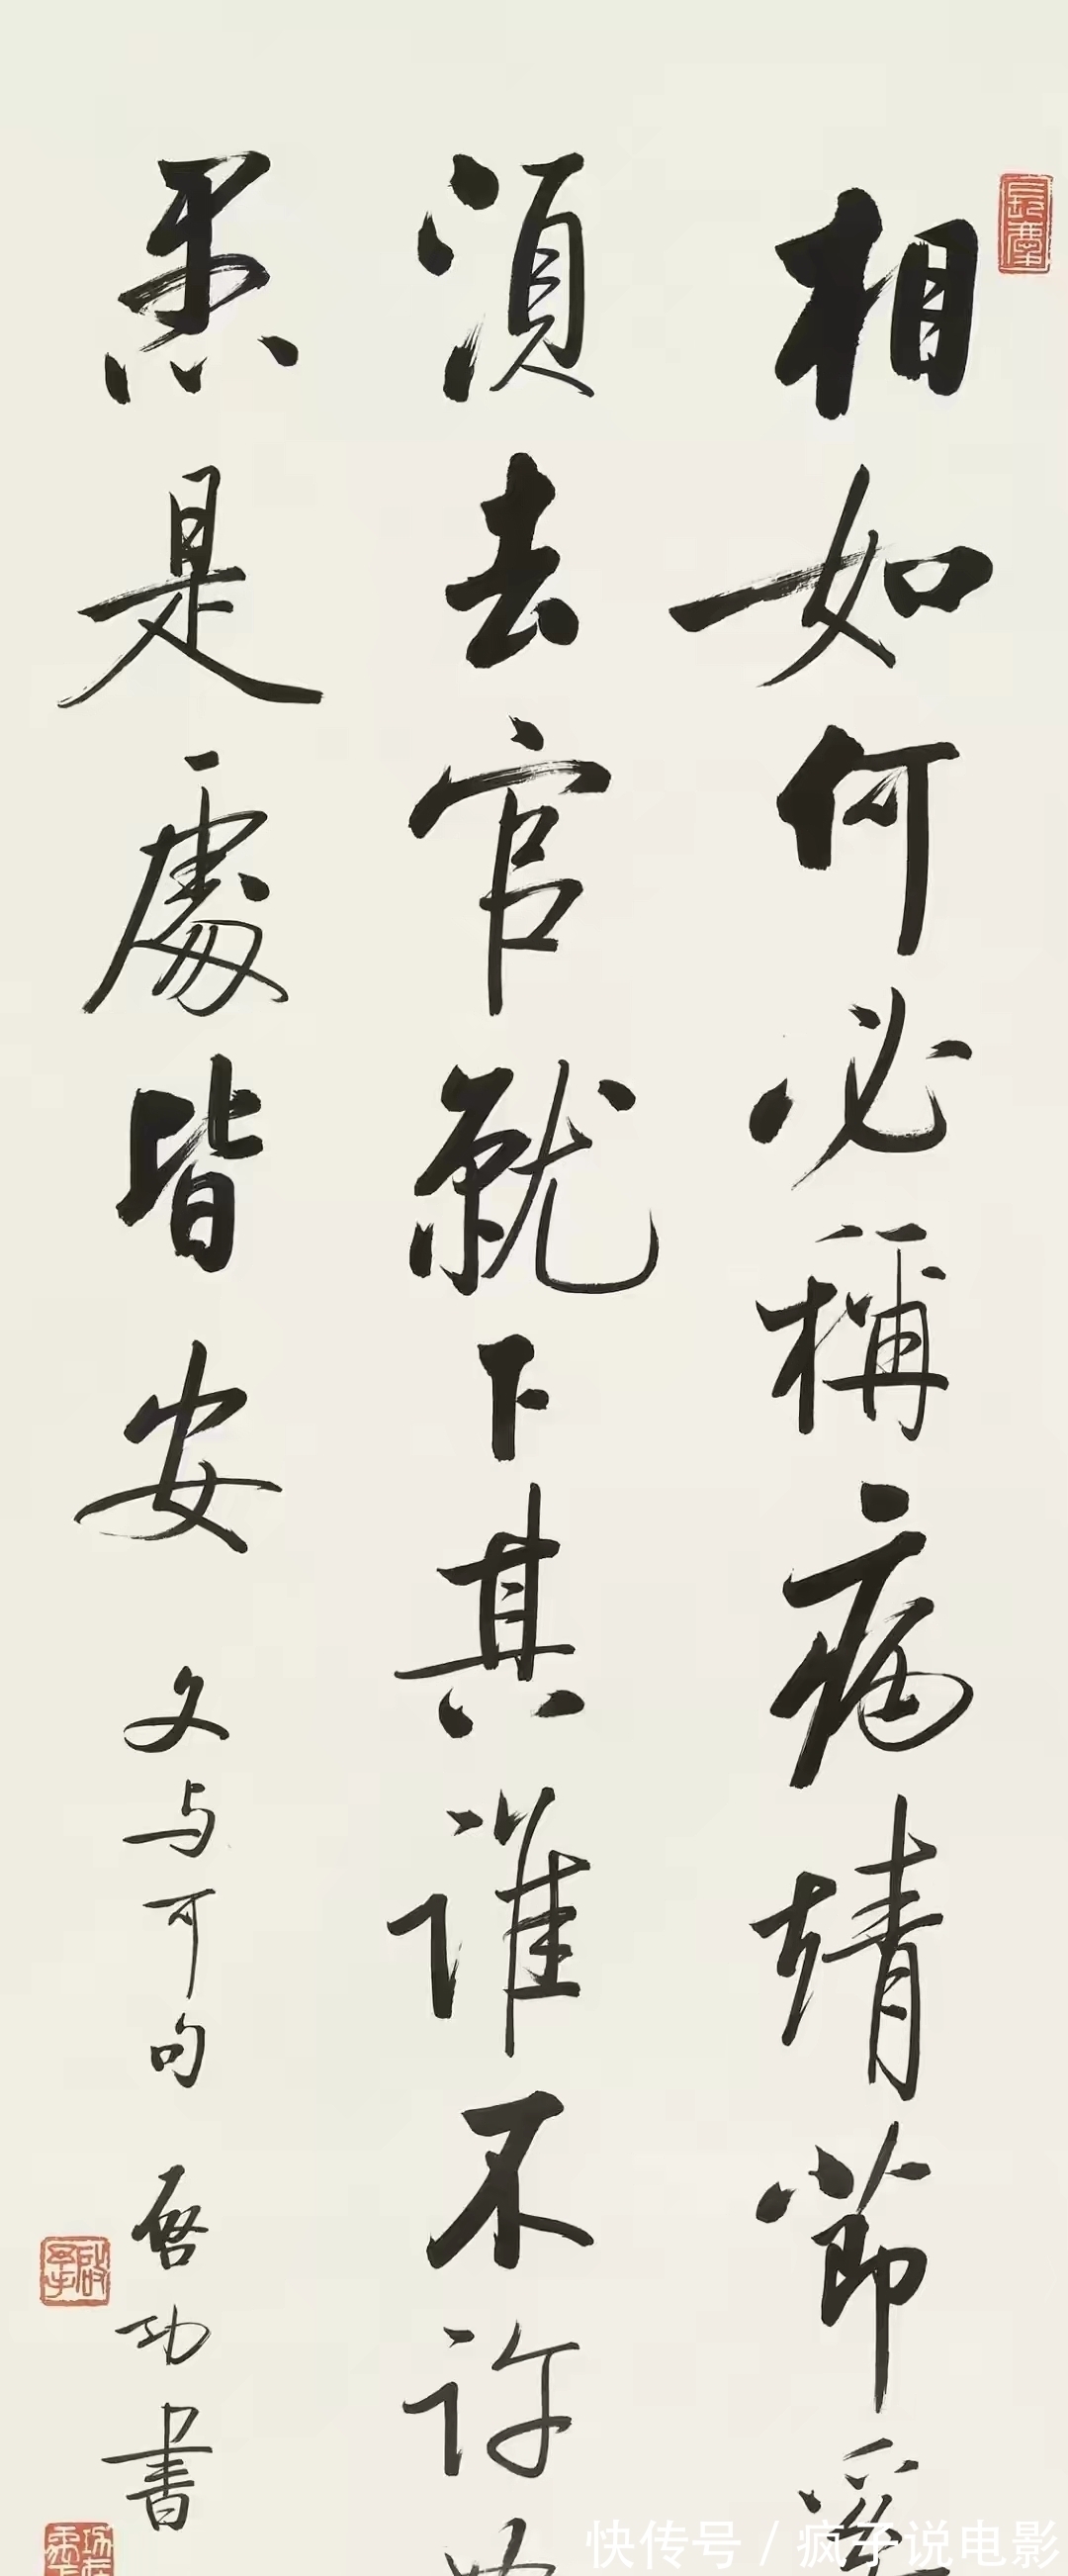 相如何必稱病靖節奚
須去官就下其誰不許
愚是處皆安
文与可句 啓功書
快传号 / 疯子说电影